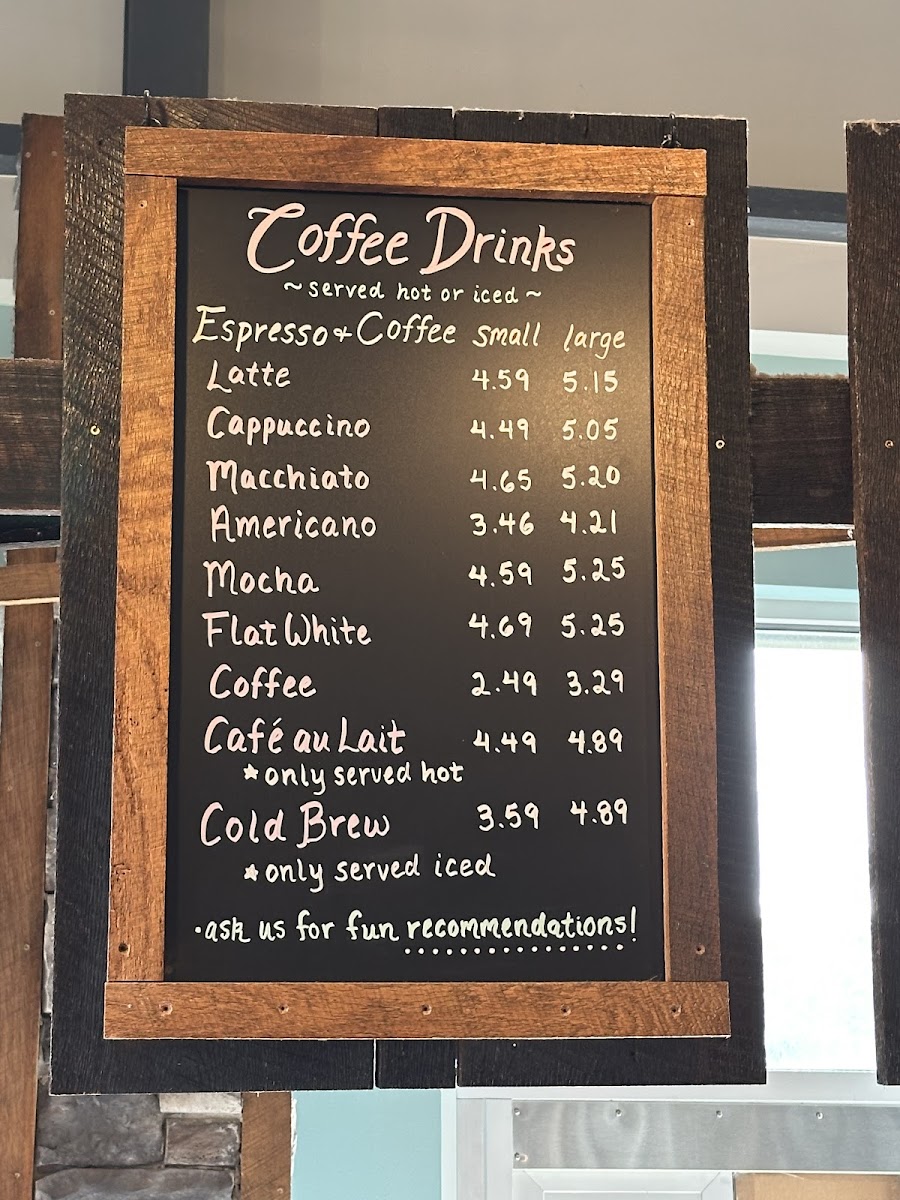 Coffee Drinks
~ served hot or iced ~
Espresso + Coffee small large
Latte 4.59 5.15
Cappuccino 4.49 5.05
Macchiato 4.65 5.20
Americano 3.46 4.21
Mocha 4.59 5.25
Flat White 4.69 5.25
Coffee 2.49 3.29
Café au Lait 4.49 4.89
★only served hot
Cold Brew 3.59 4.89
★only served iced
•ask us for fun recommendations!